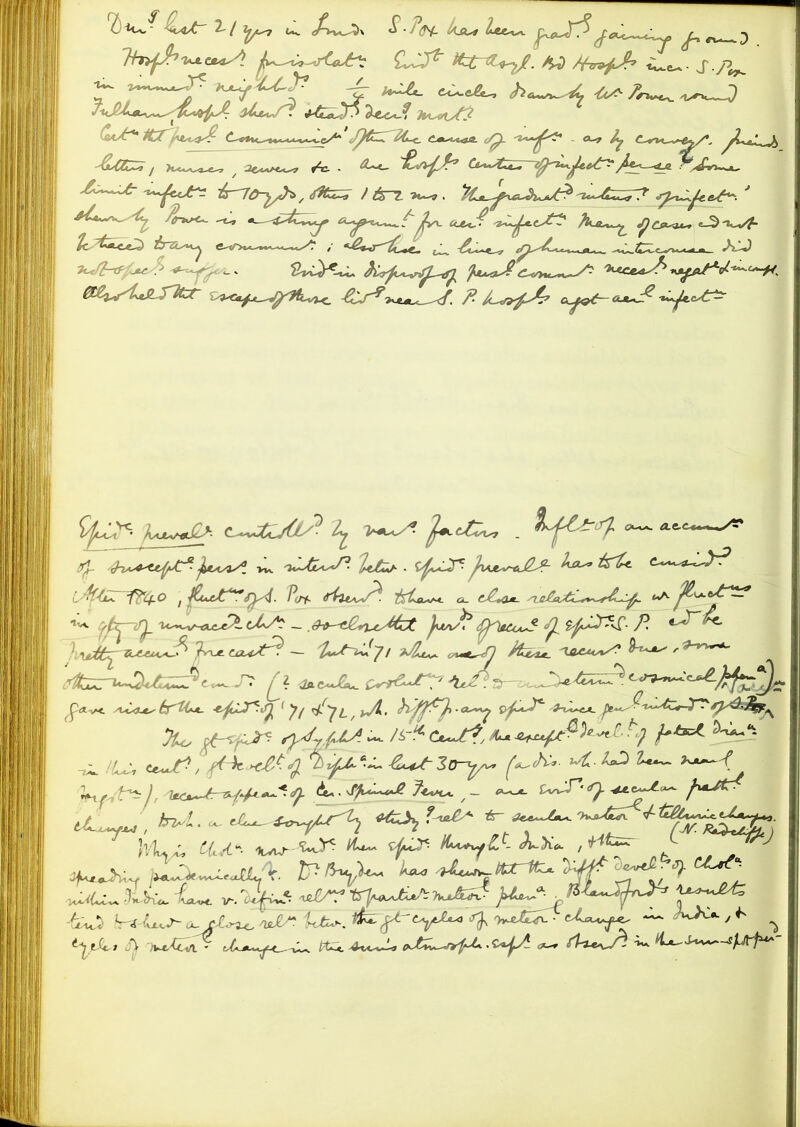 Dur^g last 21 yrs in Lond. S. Pox has been grad^y gaining ground.
Hosp^ls necess^y for isolat^n. Evid^ce tht Asyl. Bd Hosp^ls incr. S. Pox
in immed^te neighb^d. ¼ mile circles drawn by Mr Power round
Fulham Hospl shew^d stead^y decr^g mort^y
Cert^n tht pers^l communicat^n often the cause of inf^n - as by convey^s, friends,
letters, nurses, sewers &c. are Hosp^ls centres of infect^n per se? Some
limit infect^n to 10 yds, others 1 to 2 ms. The graduat^d intens^y of infect^n
shewn by Power is a strong argum^t for aer^l infect^n. Many of cases cd not
be traced to any commun^n; also those in lines of human intercourse did
not spec^ly suffer. Evid^ce in disproof of pers^l commun^n necess^y negat^e & incompl.
Also held tht escape of those liv^g near S. P. hosp^ls agst aer^l infect^n
Epid^c preval^ce controll^d by var^s factors. Infl^ce of an accum^n
of suscept^e pers^s in interv^l betw. epid^c preval^ce has to be consid^d
After 1840, fluct^ns of S. Pox observ^d to have a close relationship w^h fluct^ns
in qty of unvacc^d chn - so close tht per^d of recur^ce of epid^c S. P. cd be
pretty accur^ly forecast^d - but in '71 when one of these recur^s due, some
other undeterm^d cond^n (? secular evolut^n, rel^d to undeterm^d cosmical phen^a)
gave rise to the epid^c of '71 & '72, wh. diff^d f. any epid^c since gen^l introd^n of
The gt epid^c of Syph^s in 15^th Cent^y, the except^l devel^t of fatal Diar^a
in this cent^y, gt devel^t of Diph^a in last 30 yrs (a dis. wh. had been near^ly
forgot^n), recent appear^ce of Cer. Spinal Fever, - are evid^ce of secular path^l
changes, to wh. a clue sought by study^g rel^n to secular meteor^l & telluric changes.
(N. Radcliffe)
Why is Chol^a now End^c then epid^c through^t India, & then
spreading pandemically? Dr Bryden has shewn tht the diff^t devel^ts of Chol^a
within India have v. defin^e rel^ns to partic^r meteor^l phen^a. Blandford's results
tend to shew a close rel^n betw. the gt cycles of meteor^l change in India, &
cycles of meteor^l change in the sun's atmosph. esp^ly as observ^d in the sun-spot per^d